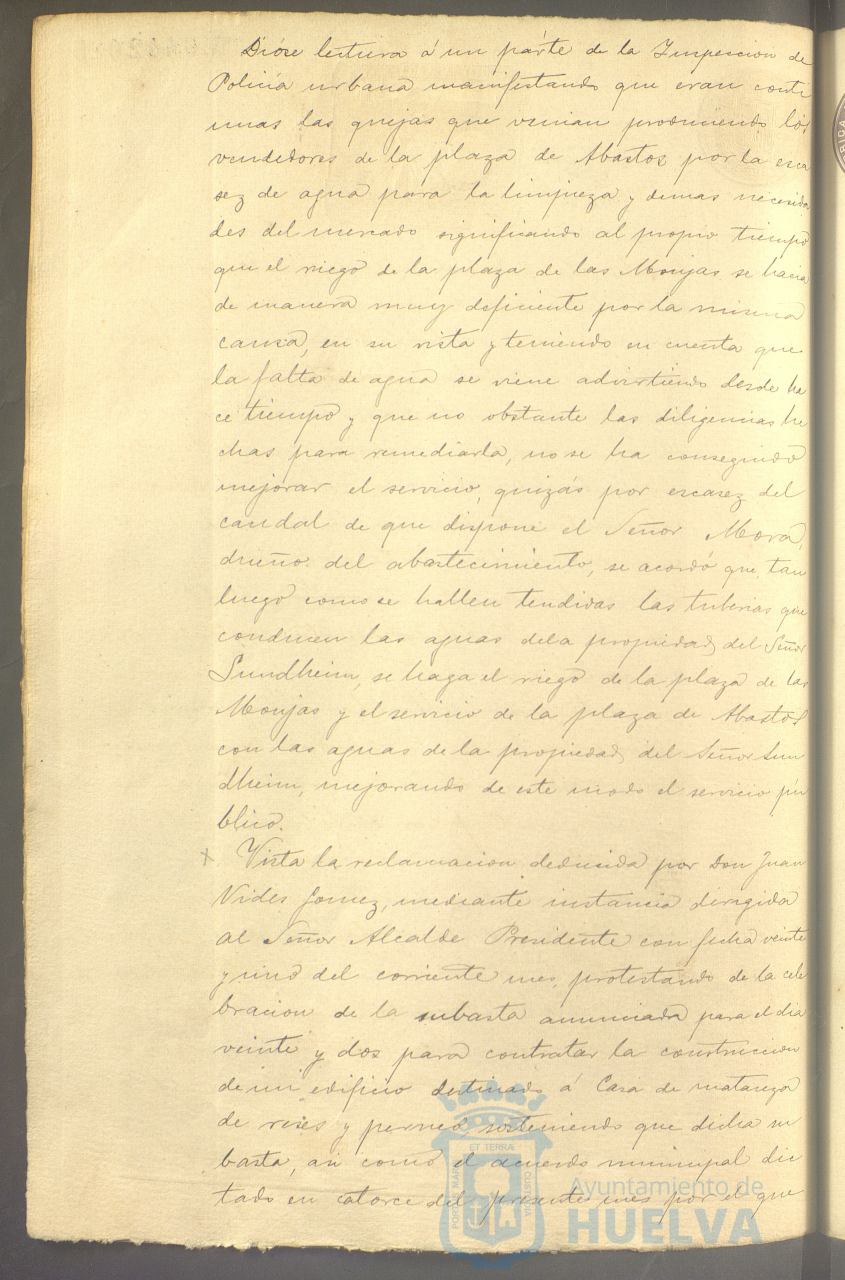 Dióse lectura á un parte de la Inspeccion de
Policía urbana manifestando que eran conti
nuas las quejas que venian produciendo los
vendedores de la plaza de Abastos por la esca
sez de agua para la limpieza y demas necesida
des del mercado significando al propio tiempo
que el riego de la plaza de las Monjas se hacia
de manera muy deficiente por la misma
causa, en su vista y teniendo en cuenta que
la falta de agua se viene advirtiendo desde ha
ce tiempo y que no obstante las diligencias he
chas para remediarla, no se ha conseguido
mejorar el servicio, quizás por escasez del
caudal de que dispone el Señor Mora,
dueño del abastecimiento, se acordó que, tan
luego como se hallen tendidas las tuberias que
conducen las aguas dela propiedad del Señor
Sundheim, se haga el riego de la plaza de las
Monjas y el servicio de la plaza de Abastos
con las aguas de la propiedad del Señor Sun
dheim, mejorando de este modo el servicio pú
blico.
x Vista la reclamacion deducida por Don Juan
Vides Gomez, mediante instancia dirigida
al Señor Alcalde Presidente con fecha veinte
y uno del corriente mes, protestando de la cele
bracion de la subasta anunciada para el dia
veinte y dos para contratar la construccion
de un edificio destinado á Casa de matanza
de reses y perneo, sosteniendo que dicha su
basta, asi como el acuerdo municipal dic
tado en catorce del presente mes por el que
PORTUS MARIS ET TERRÆ CUSTODIA
Ayuntamiento de
HUELVA